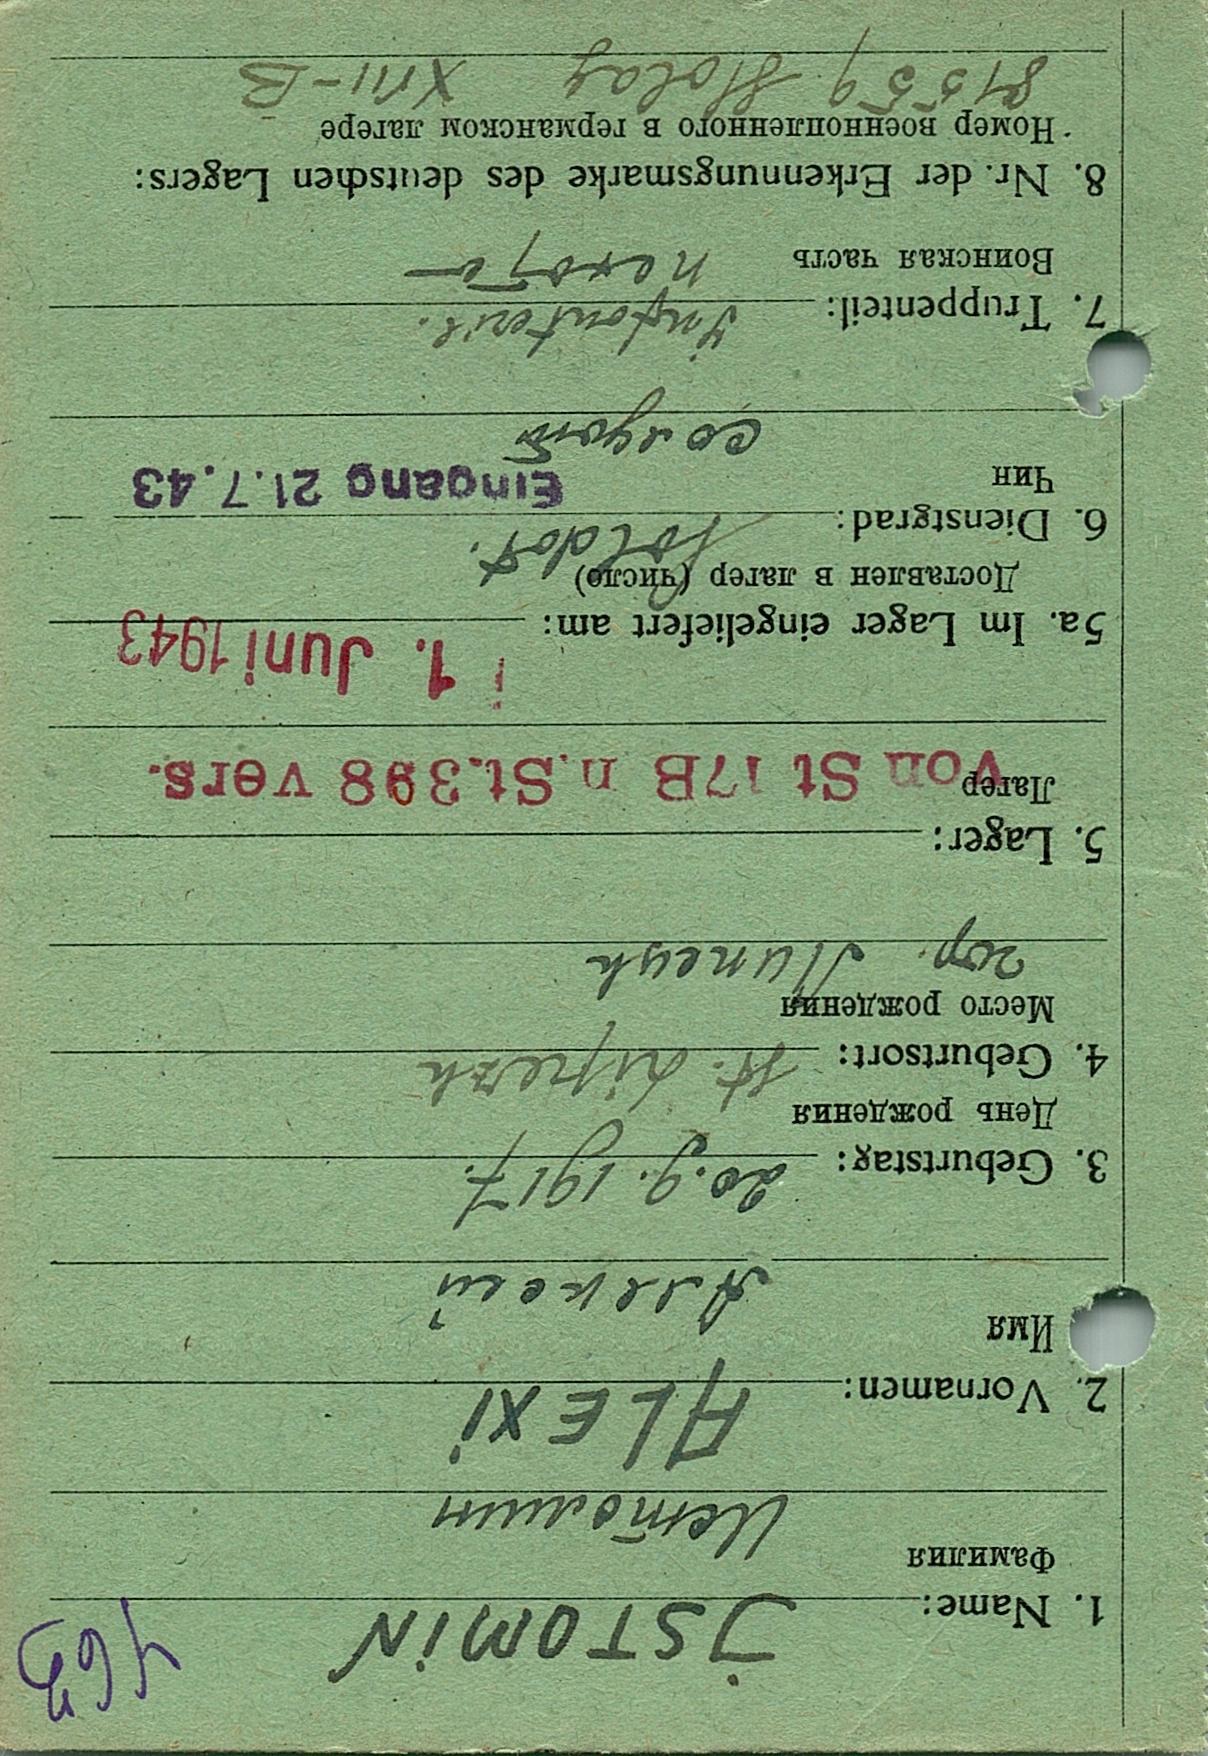 463
1. Name: ISTOMIN
Фамилия Истомин
2. Vornamen: ALEXI
Имя Алексей
3. Geburtstag: 20.9.1917.
День рождения
4. Geburtsort: St. Lipezk
Место рождения
гор. Липецк
5. Lager:
Лагер Von St 17B n. St. 398 vers.
5a. Im Lager eingeliefert am: 1. Juni 1943
Доставлен в лагер (число)
6. Dienstgrad: Soldat.
Eingang 21.7.43
Чин солдат
7. Truppenteil: Infanterie.
Воинская часть пехота
8. Nr. der Erkennungsmarke des deutschen Lagers:
Номер военнопленного в германском лагере
81559 Stalag XVII-B